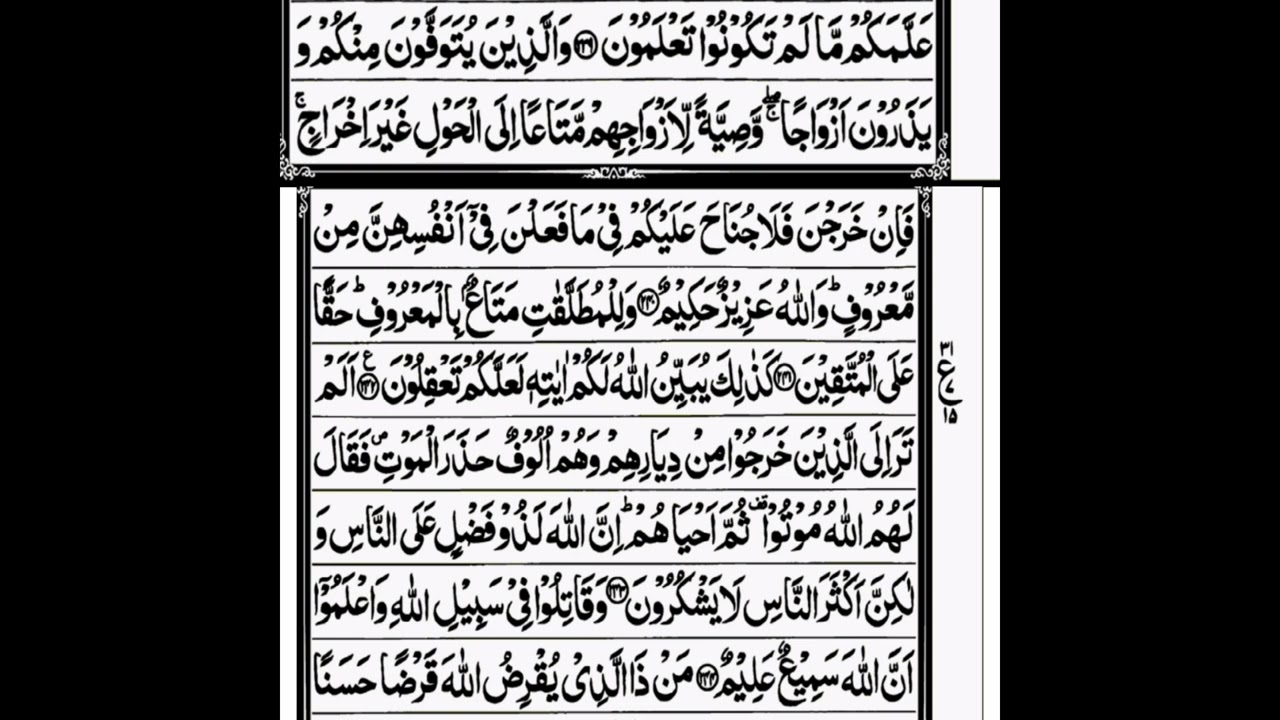 عَلَّمَكُمْ مَّا لَمْ تَكُوْنُوْا تَعْلَمُوْنَ ۝۲۳۹ وَالَّذِيْنَ يُتَوَفَّوْنَ مِنْكُمْ وَ
يَذَرُوْنَ اَزْوَاجًا ۖۚ وَّصِيَّةً لِّاَزْوَاجِهِمْ مَّتَاعًا اِلَى الْحَوْلِ غَيْرَ اِخْرَاجٍ ۚ
فَاِنْ خَرَجْنَ فَلَا جُنَاحَ عَلَيْكُمْ فِيْ مَا فَعَلْنَ فِيْٓ اَنْفُسِهِنَّ مِنْ
مَّعْرُوْفٍ ؕ وَاللّٰهُ عَزِيْزٌ حَكِيْمٌ ۝۲۴۰ وَلِلْمُطَلَّقٰتِ مَتَاعٌۢ بِالْمَعْرُوْفِ ؕ حَقًّا
عَلَى الْمُتَّقِيْنَ ۝۲۴۱ كَذٰلِكَ يُبَيِّنُ اللّٰهُ لَكُمْ اٰيٰتِهٖ لَعَلَّكُمْ تَعْقِلُوْنَ ۝۲۴۲ ع اَلَمْ
۳۱
ع
۷
۱۵
تَرَ اِلَى الَّذِيْنَ خَرَجُوْا مِنْ دِيَارِهِمْ وَهُمْ اُلُوْفٌ حَذَرَ الْمَوْتِ ۪ فَقَالَ
لَهُمُ اللّٰهُ مُوْتُوْا ۟ قف ثُمَّ اَحْيَاهُمْ ؕ اِنَّ اللّٰهَ لَذُوْ فَضْلٍ عَلَى النَّاسِ وَ
لٰكِنَّ اَكْثَرَ النَّاسِ لَا يَشْكُرُوْنَ ۝۲۴۳ وَقَاتِلُوْا فِيْ سَبِيْلِ اللّٰهِ وَاعْلَمُوْٓا
اَنَّ اللّٰهَ سَمِيْعٌ عَلِيْمٌ ۝۲۴۴ مَنْ ذَا الَّذِيْ يُقْرِضُ اللّٰهَ قَرْضًا حَسَنًا